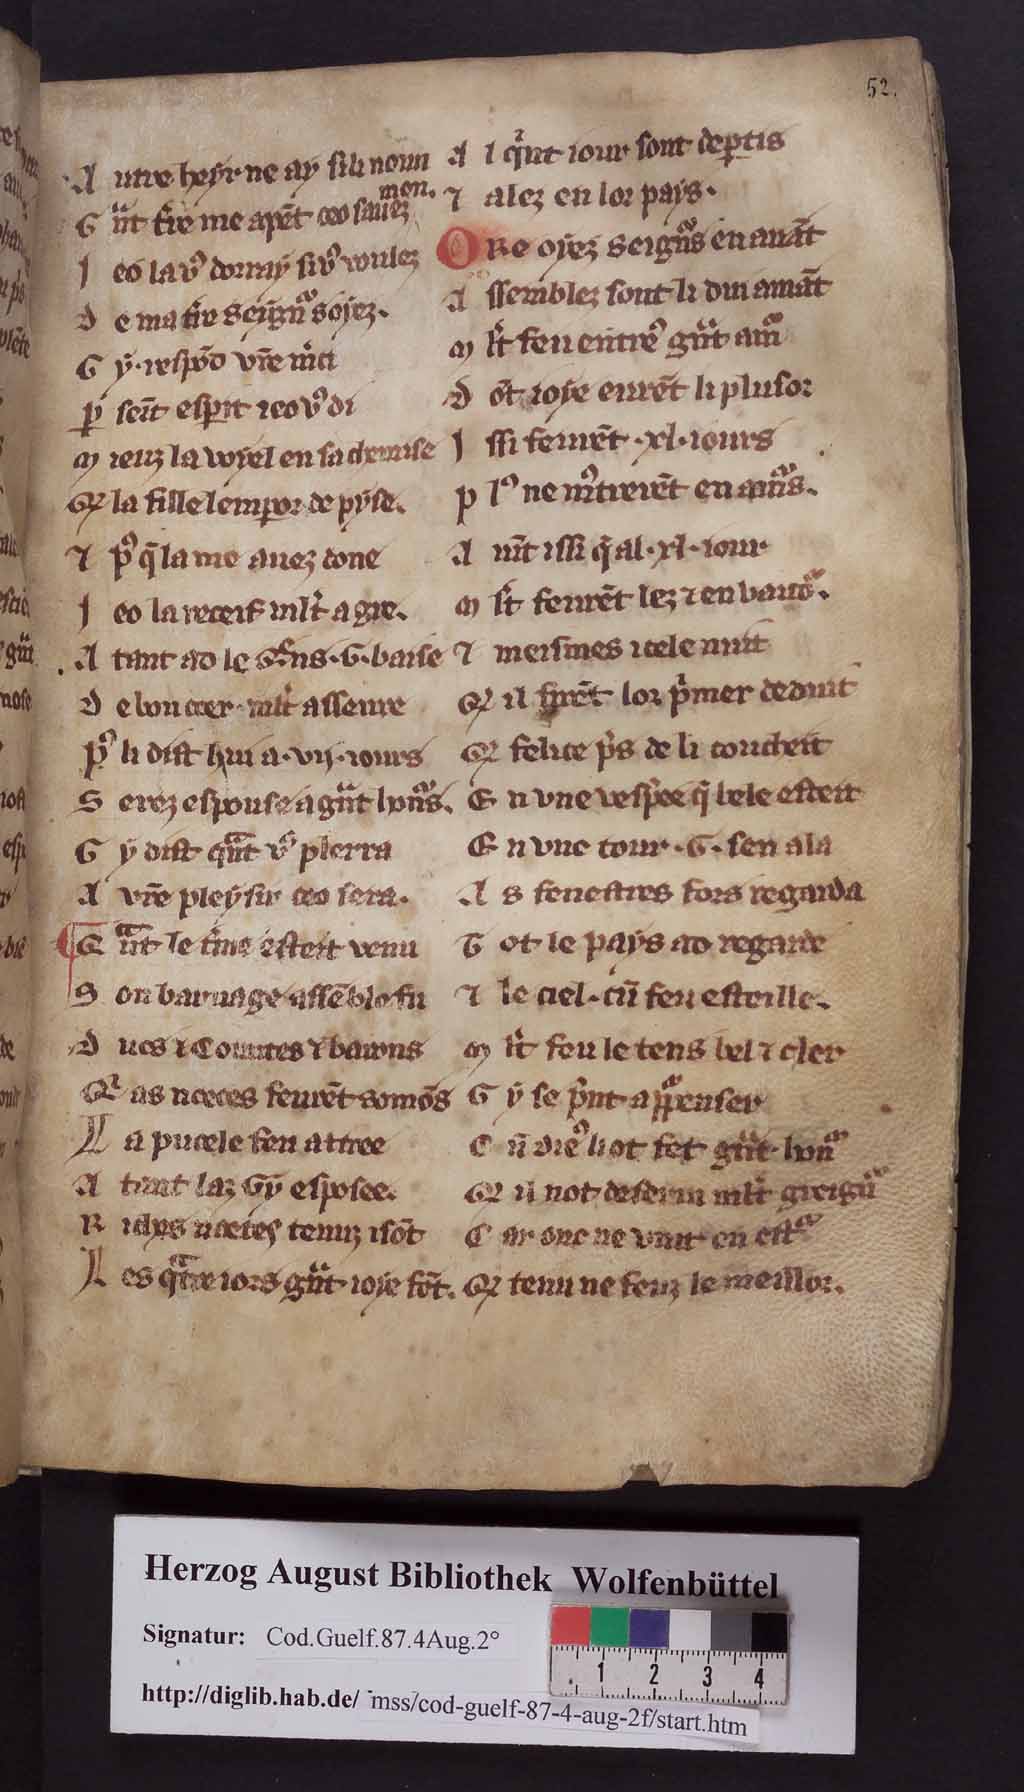 52.
A utre heyr ne ay si li noun
G ͣnt t̄re me apēt ceo sauez mon.
J eo la vꝰ dorray si vꝰ voulez
D e ma t̄re seignᵒʳs oyez.
G y. respōd vr̄e m̄ci
P ͬ seīt esp̄it ieo vꝰ di
M ieuz la voyel en sa chemise
Qͬ la fille lempor de pyse.
⁊ pͬ q̄ la me auez done
J eo la receif ml̄t a gre.
A tant ad le .G. baise
D e bon cœr ml̄t asseure
Pͬ li dist hui a .vij. iours
S erez espouse a gͣnt honᵒʳs.
G y dist qͣnt vꝰ plerra
A vr̄e pleysir ceo sera.
Q ͣnt le t̄me esteit venu
S on barnage assēble fu
D ucs ⁊ Countes ⁊ barons
Qͬ as noeces feurēt somōs
L a pucele feu attree
A tant laz Gy esposee.
R iches noeces tenuz i sōt
L es qͣtre iors gͣnt ioye fōt.
A l qͬnt iour sont dep̱tis
⁊ alez en lor pays.
O Re oyez seignᵒʳs en auāt
A ssemblez sont li dui amāt
M l̄t feu entrē gͣnt amᵒʳ
D ōt ioye eurēt li plusor
J ssi feurēt .xl. iours
P lꝰ ne mꝰtrerēt en amᵒʳs.
A uīt issi q̄ al .xl. iour
M l̄t feurēt lez ⁊ en baudᵒʳ.
⁊ meismes icele nuit
Qͬ il firēt lor pͥmer deduit
Qͬ felice pͬs de li coucheit
E n vne vespree q̄ bele esteit
E n vne tour .G. sen ala
A s fenestres fors regarda
T ot le pays ad regarde
⁊ le ciel cū feu esteille.
M l̄t feu le tens bel ⁊ cler
G y se pͥnt a pᵒʳpenser
C ū dieꝰ li ot fet gͣnt honᵒʳ
Qͬ il not deseru ml̄t greignᵒʳ
C ar onc ne vint en estᵒʳ
Qͬ tenu ne feuz le meillor.
Herzog August Bibliothek Wolfenbüttel
Signatur: Cod.Guelf.87.4Aug.2°
1 2 3 4
http://diglib.hab.de/ mss/cod-guelf-87-4-aug-2f/start.htm